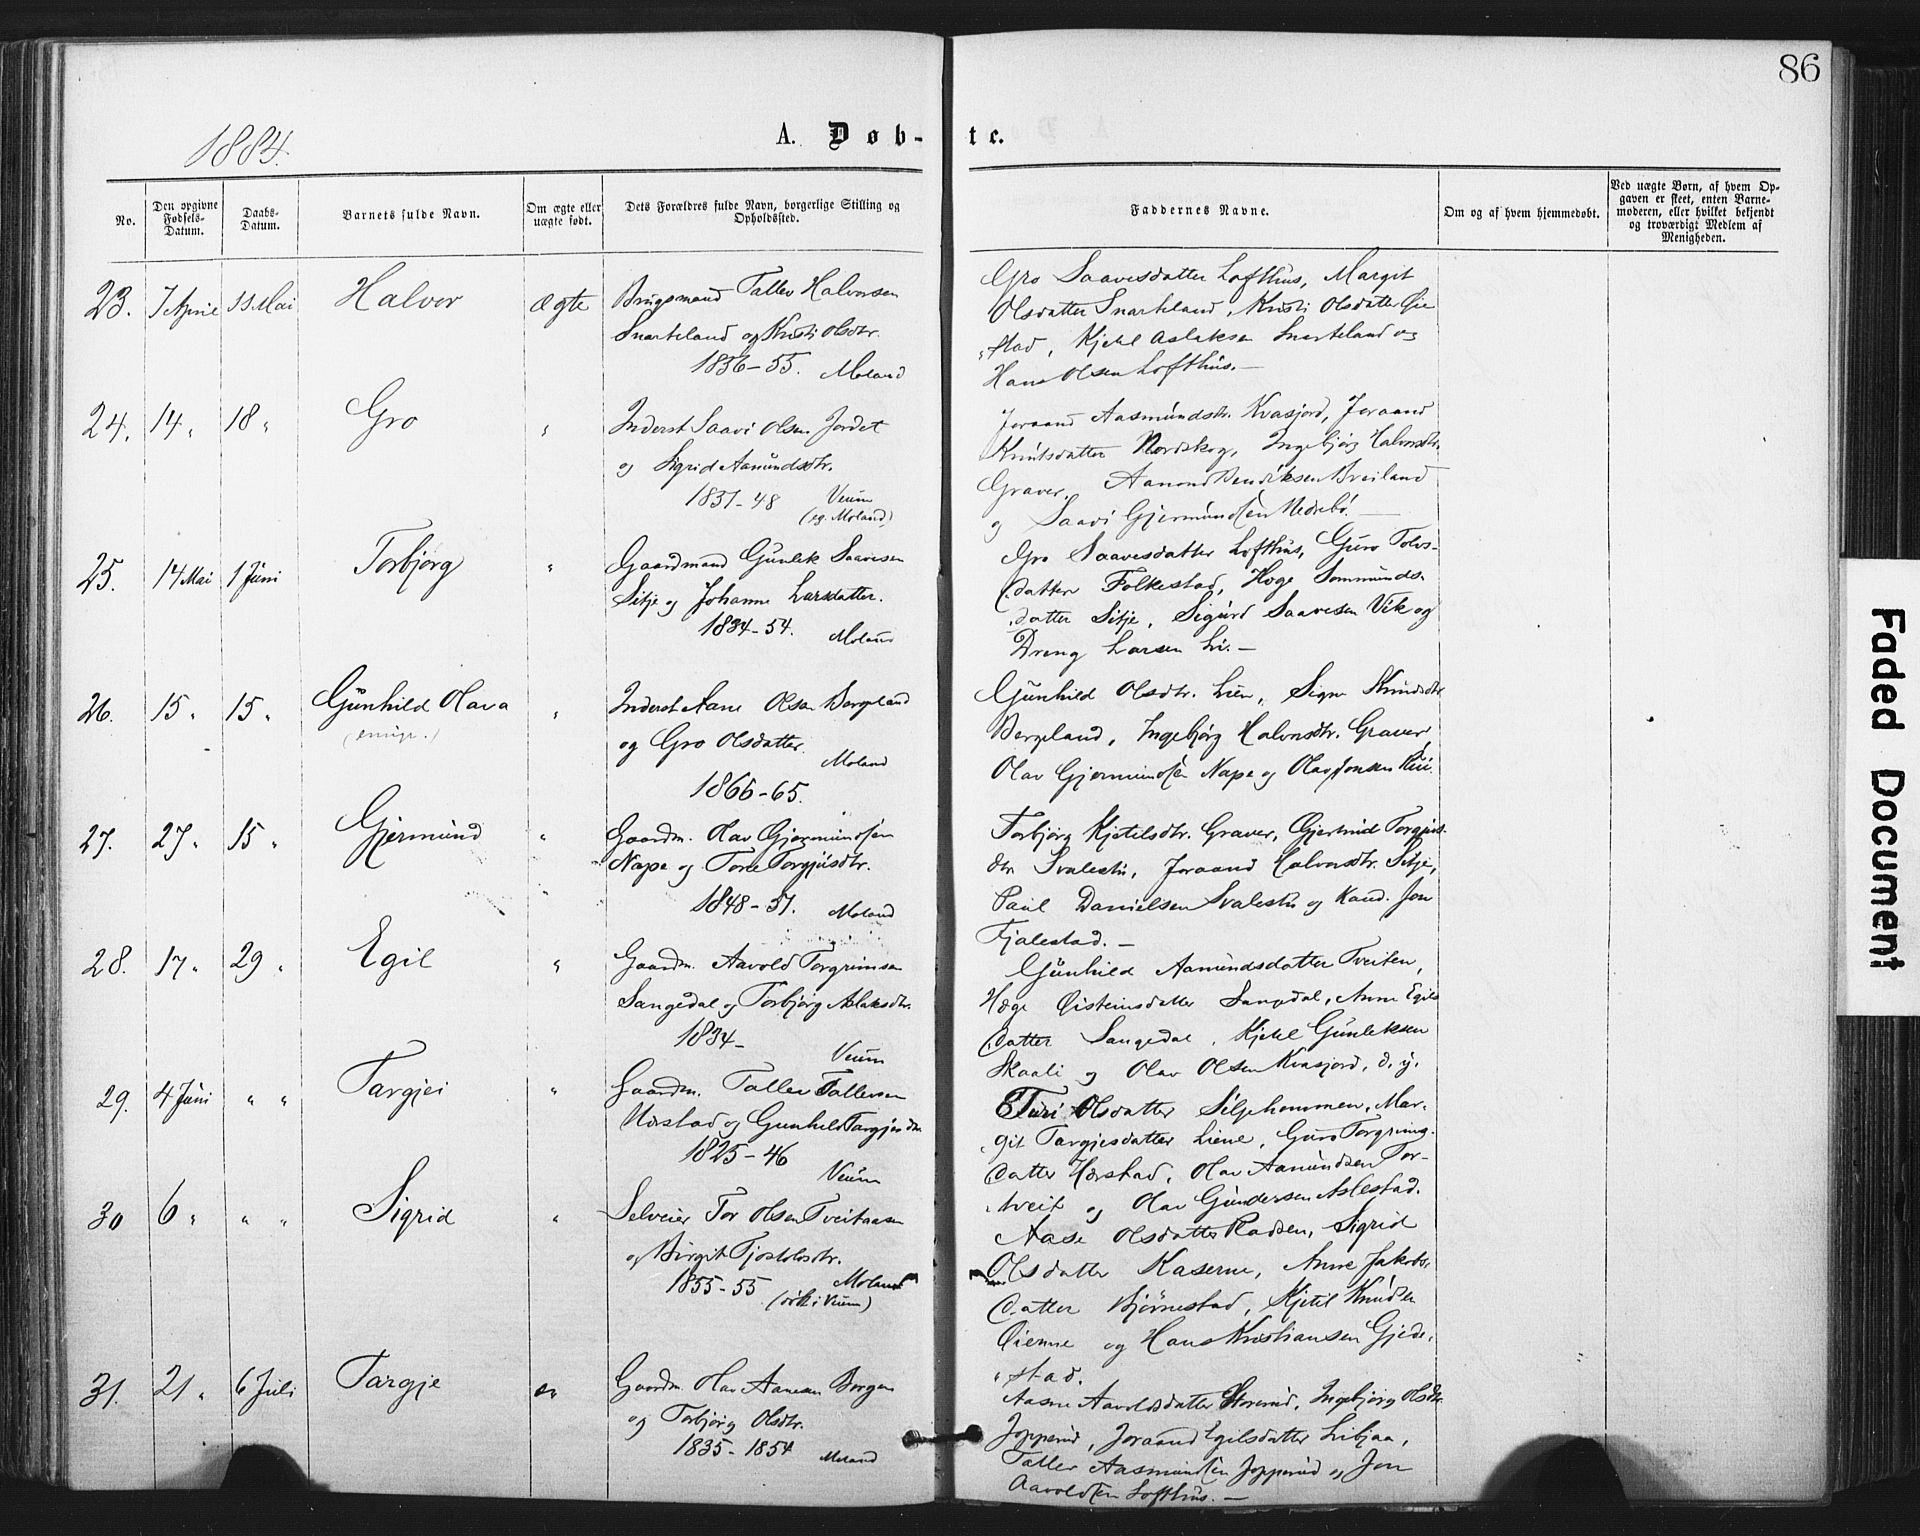 86
1884.
A. Døb-
te.
No.
Den opgivne Fødsels-Datum.
Daabs-Datum.
Barnets fulde Navn.
Om ægte eller uægte født.
Dets Forældres fulde Navn, borgerlige Stilling og Opholdssted.
Faddernes Navne.
Om og af hvem hjemmedøbt.
Ved uægte Børn, af hvem Op-
gaven er skeet, enten Barne-
moderen, eller hvilket bekjendt
og troværdigt Medlem af
Menigheden.
23. 7 April 11 Mai Halvor Ægte
Brugsmand Tallev Halvorsen
Snarteland og Kristi Olsdtr.
1856-55. Moland
Gro Saavesdatter Lofthus, Margit
Olsdatter Snarteland, Kristi Olsdatter Øie
stad, Kjetil Aslaksen Snarteland og
Hans Olsen Lofthus.—
24. 14 " 18 " Gro "
Inderst Saavi Olsen Jordet
og Sigrid Aamundsdtr.
1851-48 Veum
(eg. Moland)
Joraand Aasmundsdtr. Kvasjord, Joraand
Knutsdatter Nordskog, Ingebjørg Halvorsdtr.
Graver, Aamond Bendiksen Breiland
og Saavi Gjermundsen Nedrebø.—
25. 14 Mai 1 Juni Torbjørg "
Gaardmand Gunlek Saavesen
Sitje og Johanne Larsdatter.
1834-54. Moland
Gro Saavesdatter Lofthus, Guro Tovs-
datter Folkestad, Hæge Sommunds-
datter Sitje, Sigurd Saavesen Vik og
Dreng Larsen Li.—
26. 15 " 15 " Gunhild Olava "
(emigr.)
Inderst Aane Olsen Bergland
og Gro Olsdatter.
Moland
1866-65.
Gunhild Olsdtr. Lien, Signe Knudsdtr
Bergland, Ingebjørg Halvorsdtr. Graver,
Olav Gjermundsen Nape og Olav Jonsen
27. 27 " 15 " Gjermund "
Gaardm. Olav Gjermundsen
Nape og Tone Torgjusdtr.
1848-51. Moland
Torbjørg Kjetilsdtr. Graver, Gjertrud Torgjus-
dtr Svalestu, Joraand Halvorsdtr. Sitje,
Paul Danielsen Svalestu og Kand. Jon
Fjalestad.—
28. 17 " 29 " Egil "
Gaardm. Aavold Torgrimsen
Sangedal og Torbjørg Aslaksdtr.
1834- Veum
Gunhild Aamundsdatter Tveiten,
Hæge Øisteinsdatter Sangedal, Anne Egils
datter Sangedal, Kjetil Gunleksen
Skaali og Olav Olsen Kvasjord, d.y.
29. 4 Juni " " Targjei "
Gaardm. Tallev Tallevsen
Hærstad og Gunhild Targjesdtr
1825-46
Veum
Turi Olsdatter Siljehommen, Mar-
git Targjesdatter Liene, Guro Torgrims-
datter Hærstad, Olav Aamundsen Tor-
tveit og Olav Gundersen Aslestad.
30 6 " " " Sigrid "
Selveier Tor Olsen Tveitaasen
og Birgit Tjostolvsdtr.
1855-55 Moland
(døbt i Veum)
Aase Olsdatter Raasen, Sigrid
Olsdatter Kaserne, Anne Jakobs-
datter Bjørnestad, Kjetil Knudsen
Øienne og Hans Kristiansen Gjede-
stad.
31. 21 " 6 Juli Targje "
Gaardm. Olav Aanesen Borgen
og Torbjørg Olsdtr.
1835-1854 Moland
Aasne Aavoldsdatter Storerud, Ingebjørg Olsdtr.
Jopperud, Joraand Egilsdatter Libjaa,
Tallev Aasmundsen Jopperud og Jon
Aavoldsen Lofthus.—
Faded Document